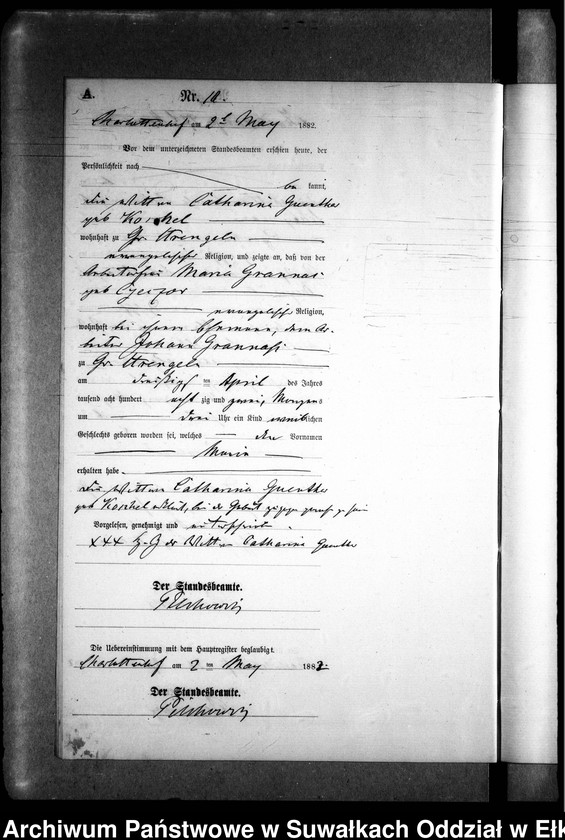 A.
Nr. 18.
Charlottenhof am 2t May 1882.
Vor dem unterzeichneten Standesbeamten erschien heute, der
Persönlichkeit nach
be kannt,
die Wittwe Catharina Guentha
geb Korchel
wohnhaft zu Gr. Strengeln
evangelischer Religion, und zeigte an, daß von der
Arbeiterfrau Maria Grannas
geb
evangelischer Religion,
wohnhaft bei ihrem Ehemann, dem Ar-
beiter Johann Grannas
zu Gr. Strengeln
am dreißigs ten April des Jahres
tausend acht hundert acht zig und zwei, Morgens
um drei Uhr ein Kind weiblichen
Geschlechts geboren worden sei, welches den Vornamen
Maria
erhalten habe.
Die Wittwe Catharina Guentha
geb Korchel erklärt, bei der Geburt zugegen gewesen zu sein
Vorgelesen, genehmigt und
XXX H. Z der Wittwe Catharina Guentha
Der Standesbeamte.
Die Uebereinstimmung mit dem Hauptregister beglaubigt.
Charlottenhof am 2 ten May 1882.
Der Standesbeamte.
Archiwum Państwowe w Suwałkach Oddział w Ełk